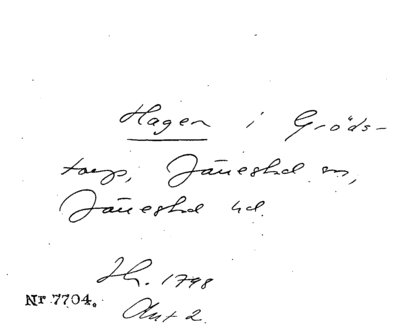 Hagen i Gröds-
torp, Järrestad sn,
Järrestad hd.
Jh. 1798
Nr 7704.
Akt 2.